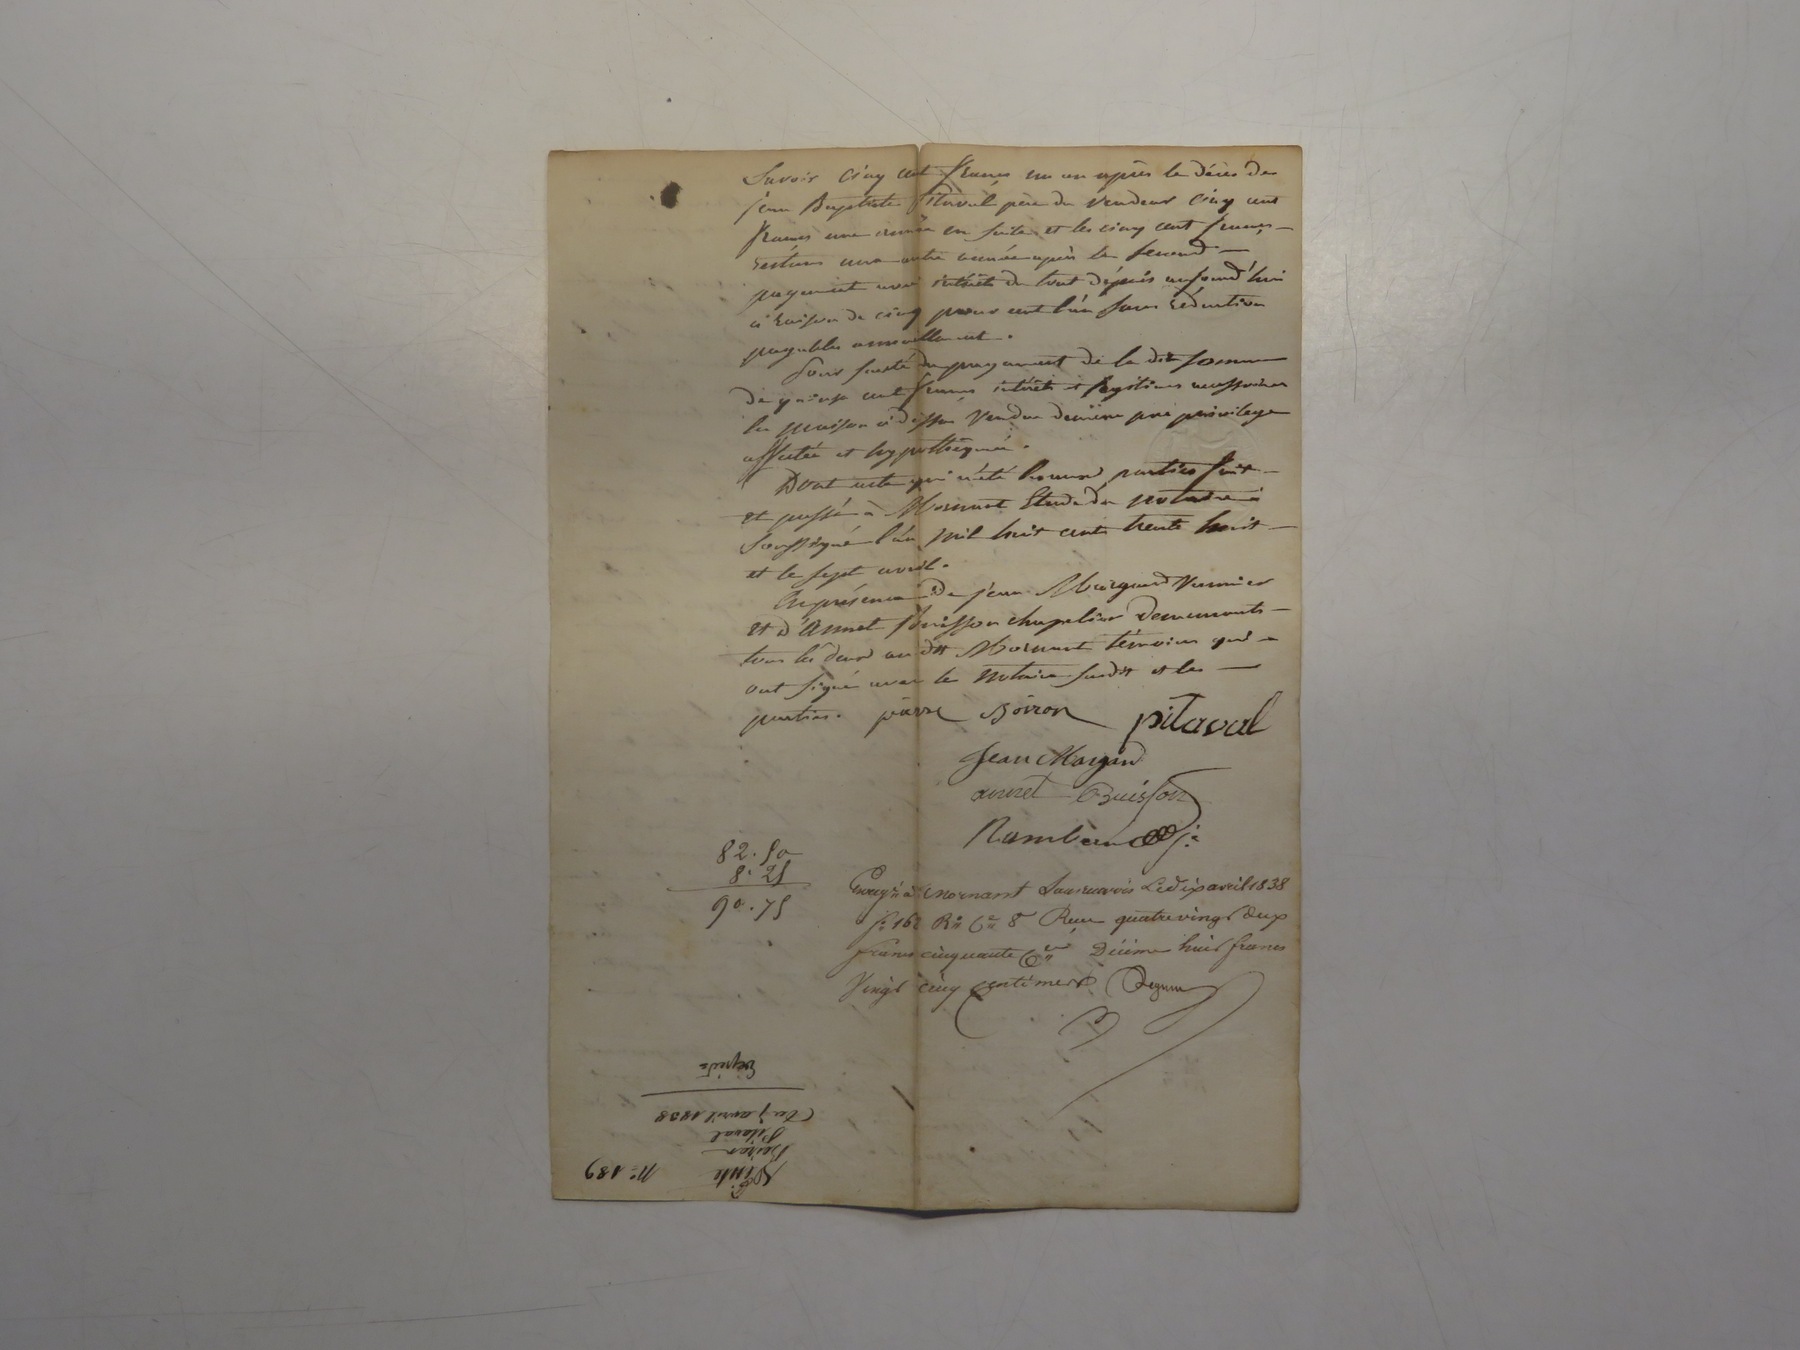 Savoir cinq cent francs un an après le décès de
jean Baptiste Pitaval père du vendeur cinq cent
francs une année en suite et les cinq cent francs
restans une autre année après le second
payement avec intérêts du tout dépuis aujourd'hui
à raison de cinq pour cent l'an sans réduction
payables annuellement.
Pour sureté du payement de la dite somme
de quinze cent francs intérêts et légitimes accessoires
la maison ci dessus vendue demeure par privilège
affectée et hypothéquée.
Dont acte qui a été lu aux parties fait
et passé à Mornant Etude du notaire
soussigné l'an mil huit cent trente huit
et le sept avril.
En présence de jean Margand
et d'Annet Buisson chapelier demeurants
tous les deux au dit Mornant témoins qui
ont signé avec le notaire susdit et les
parties. pierre Boiron pitaval
Jean Margand
annet Buisson
Rambaud
82.50
8.25
90.75
à mornant Le dix avril 1838
f° 162 R° C° 8 Reçu quatre vingt deux
francs cinquante Décime huit francs
vingt cinq centimes
N° 189
Vente
Boiron
Pitaval
Du 7 avril 1838
Expédié